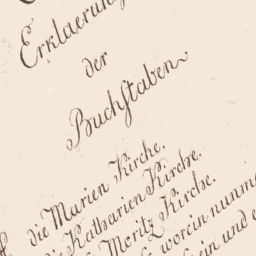 Erklaerung
der
Buchstaben
die Marien Kirche.
die Katharien Kirche.
Moritz Kirche.
worein nunm
ein und e